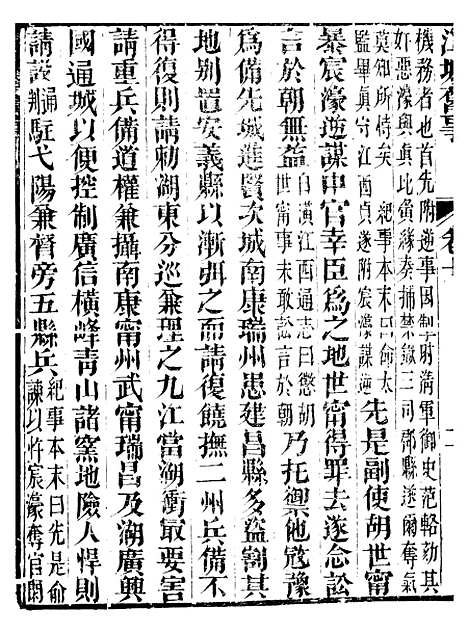 江城舊事　卷十
機務者也首先附逆事因制府清軍御史范輅劾其
奸惡濠與真比黃緣奏捕禁獄三司郡縣遂爾奪氣
莫知所恃矣　紀事本末曰俞
監畢真守江西貞遂附宸濠謀逆先是副使胡世甯
暴宸濠逆謀中官幸臣為之地世甯得罪去遂念訟
言於朝無益自橫江西通志曰懲胡世甯事未敢訟言於朝乃托禦他寇豫
為備先城進賢次城南康瑞州患建昌縣多盜割其
地別置安義縣以漸弭之而請復饒撫二州兵備不
得復則請勅湖東分巡兼理之九江當湖衝最要害
請重兵備道權兼攝南康甯州武甯瑞昌及湖廣興
國通城以便控制廣信橫峰青山諸窯地險人悍則
請設通判駐弋陽兼督旁五縣兵紀事本末曰先是俞諫以忤宸濠奪官閒